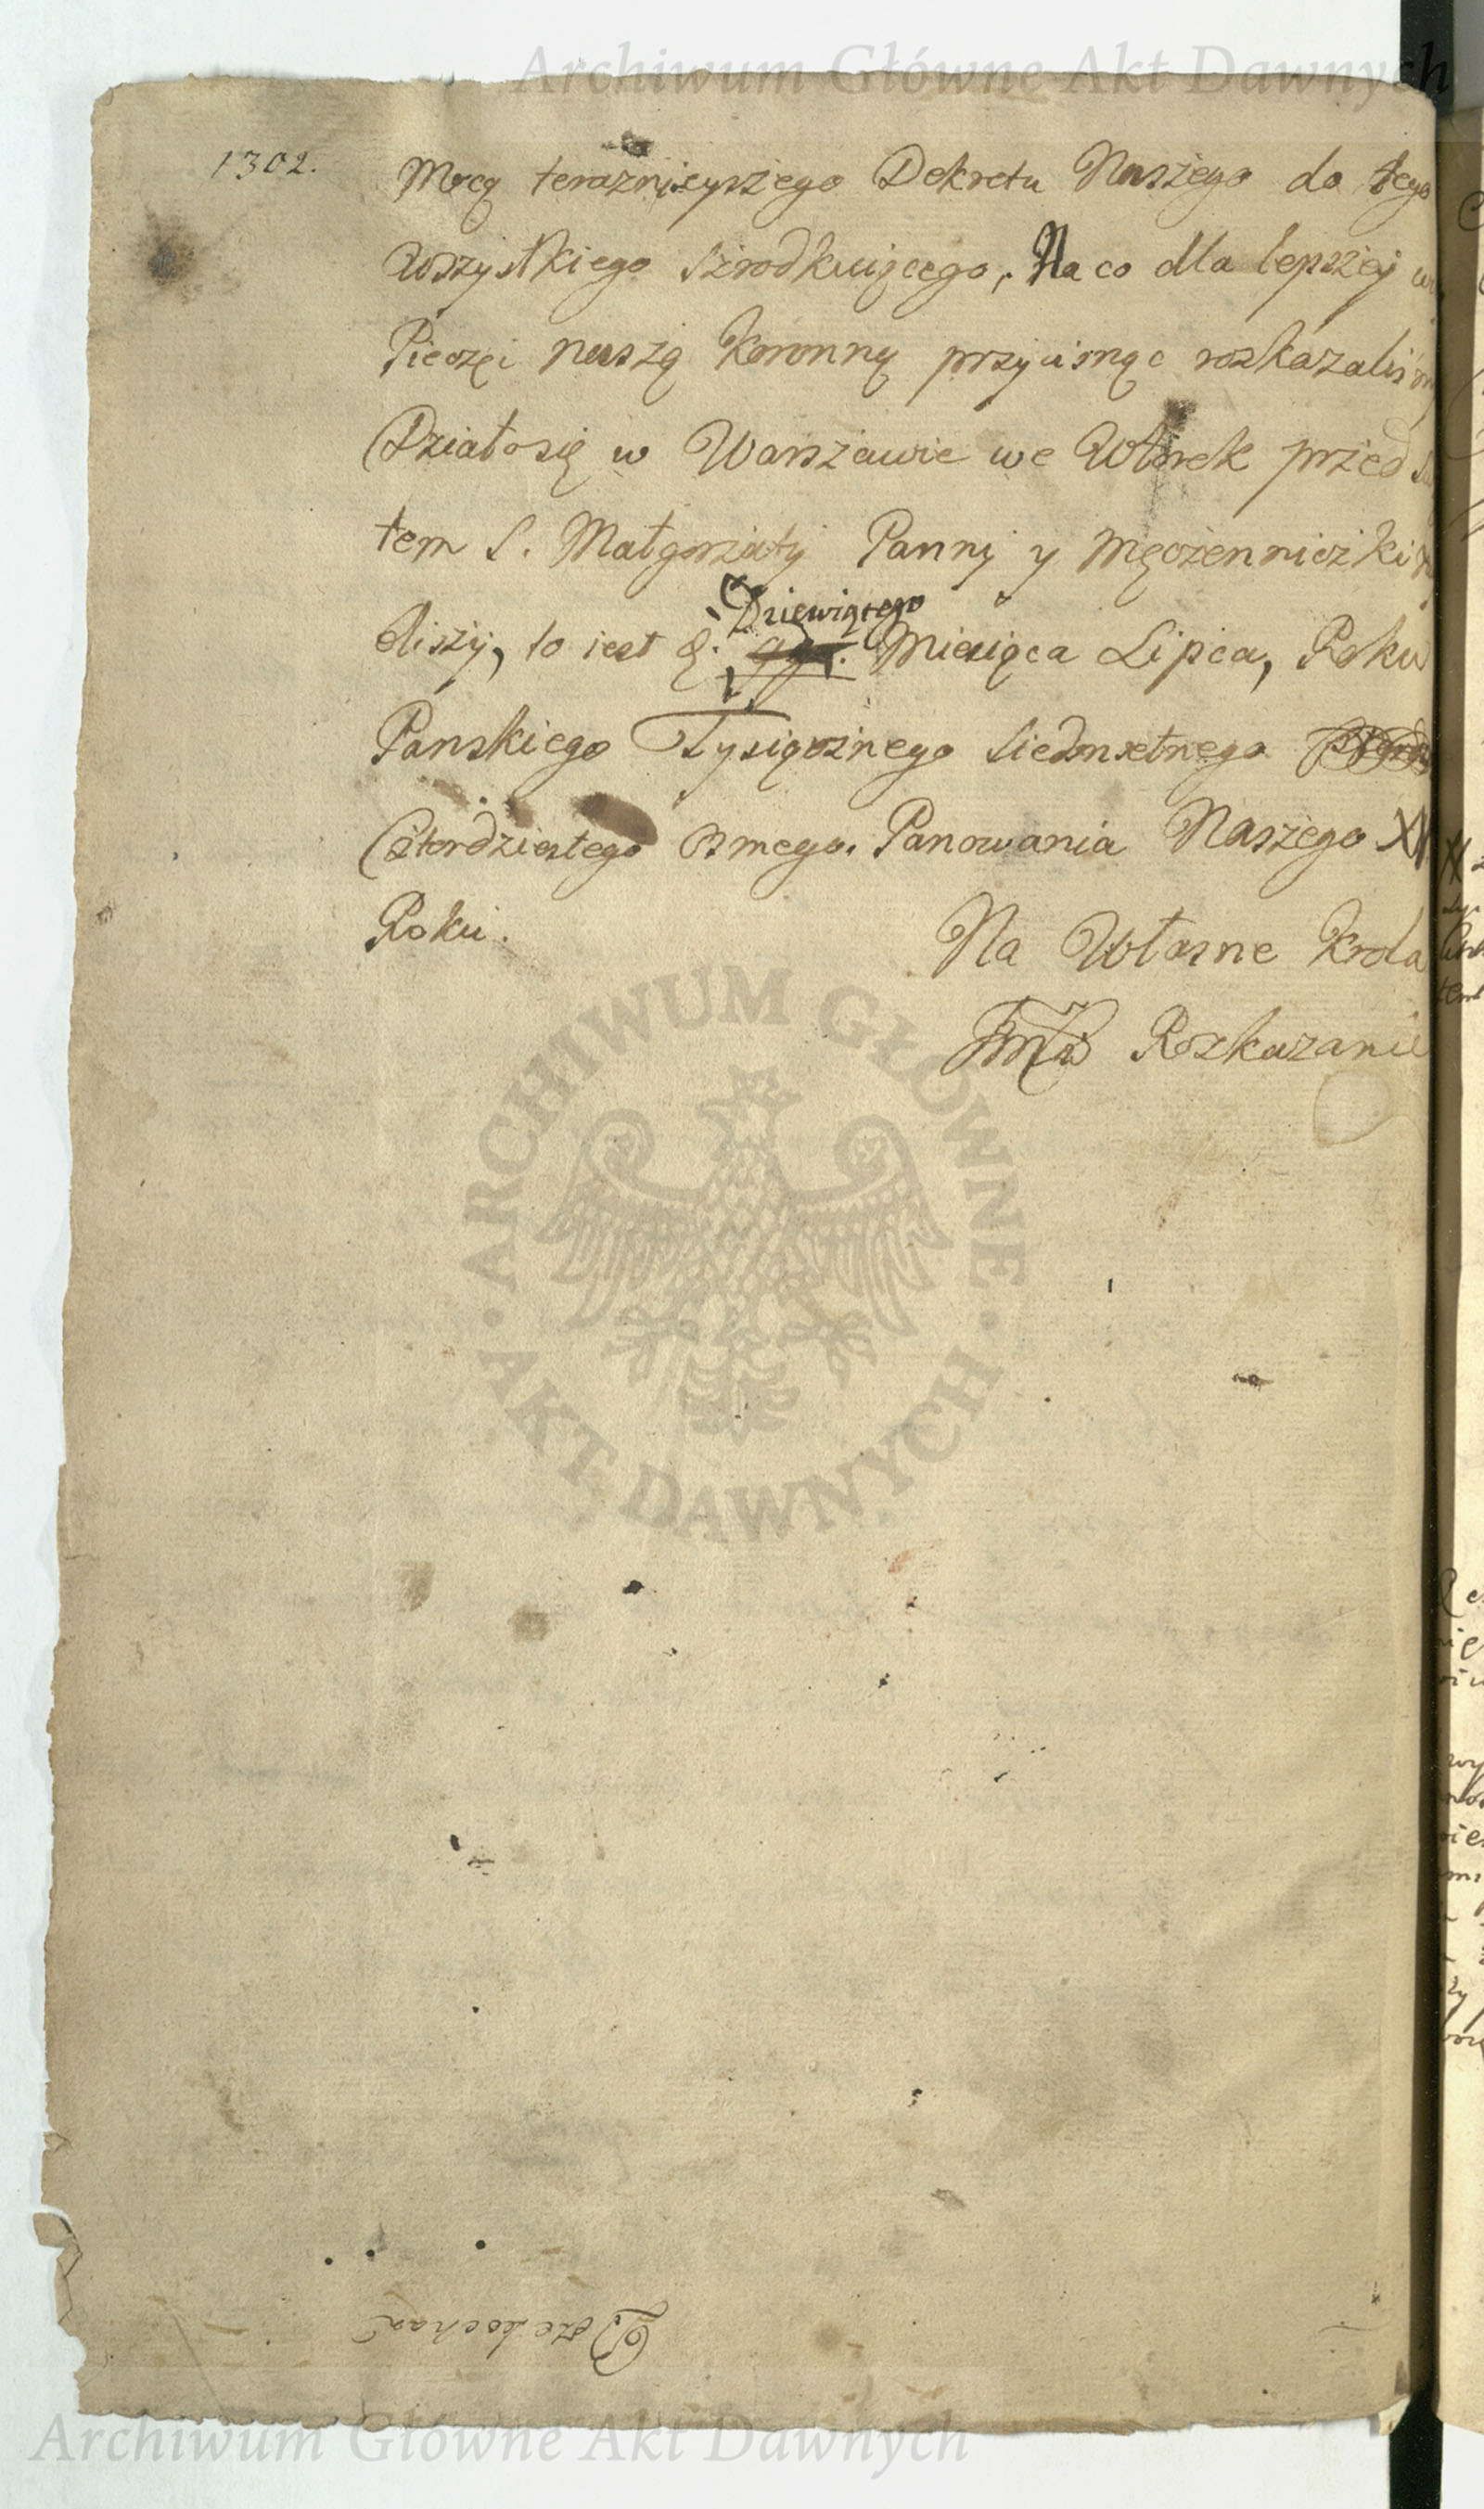 Archiwum Główne Akt Dawnych
1302.
Mocą teraznieyszego Dekretu Naszego do tego
wszystkiego szrodkuiącego, Na co dla lepszey
Pieczęi naszą Koronną przycisnąc roskazaliśm
Działosię w Warszawie we Wtorek przed
tem S. Małgorzaty Panny y Męczenniczki
bliszy, to iest d. Dziewiątego Miesiąca Lipca, Roku
Panskiego Tysiącznego Siedmsetnego
Czterdziestego osmego. Panowania Naszego
Roku.
Na Własne Krola
Rozkazanie
ARCHIWUM GŁÓWNE
AKT DAWNYCH
Archiwum Główne Akt Dawnych